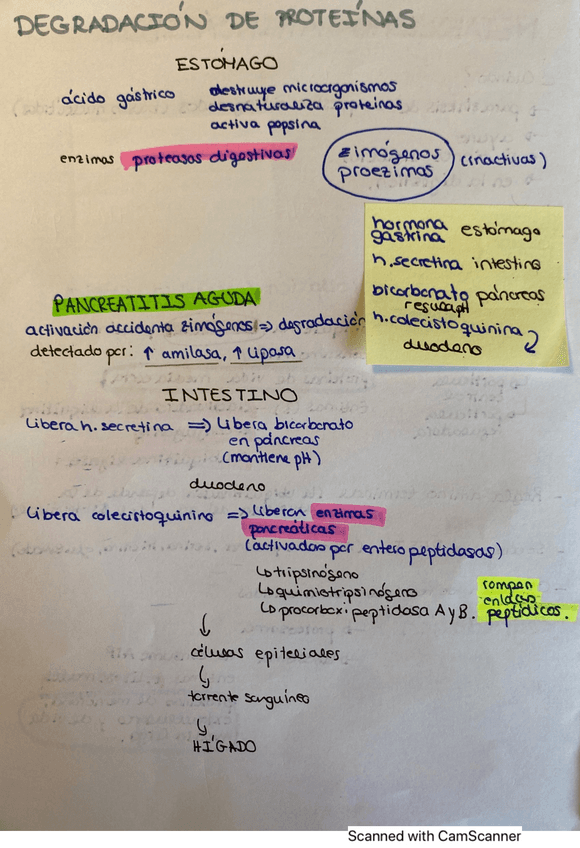 DEGRADACIÓN DE PROTEÍNAS
ESTÓMAGO
ácido gástrico destruye microorganismos
desnaturaliza proteínas
activa popsina
enzimas proteasas digestivas
zimógenos (inactivas)
proezimas
hormona gastrina estómago
h.secretina intestino
bicarbonato páncreas
resuelve pH
h.colecistoquinina
duodeno
PANCREATITIS AGUDA
activación accidenta zimógenos => degradación
detectado por: ↑ amilasa, ↑ lipasa
INTESTINO
Libera h. secretina => Libera bicarbonato
en páncreas
(mantiene pH)
duodeno
Libera colecistoquinina => Liberan enzimas
pancreáticas
(activadas por entero peptidasas)
↳ tripsinógeno
↳ quimiotripsinógeno
↳ procarboxipeptidasa A y B.
rompen
enlaces
peptídicos.
células epiteliales
torrente sanguíneo
HÍGADO
Scanned with CamScanner